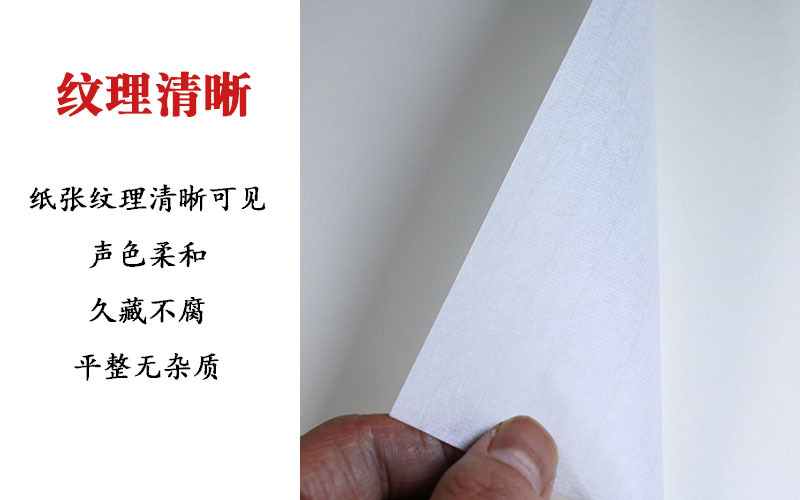 纹理清晰
纸张纹理清晰可见
声色柔和
久藏不腐
平整无杂质